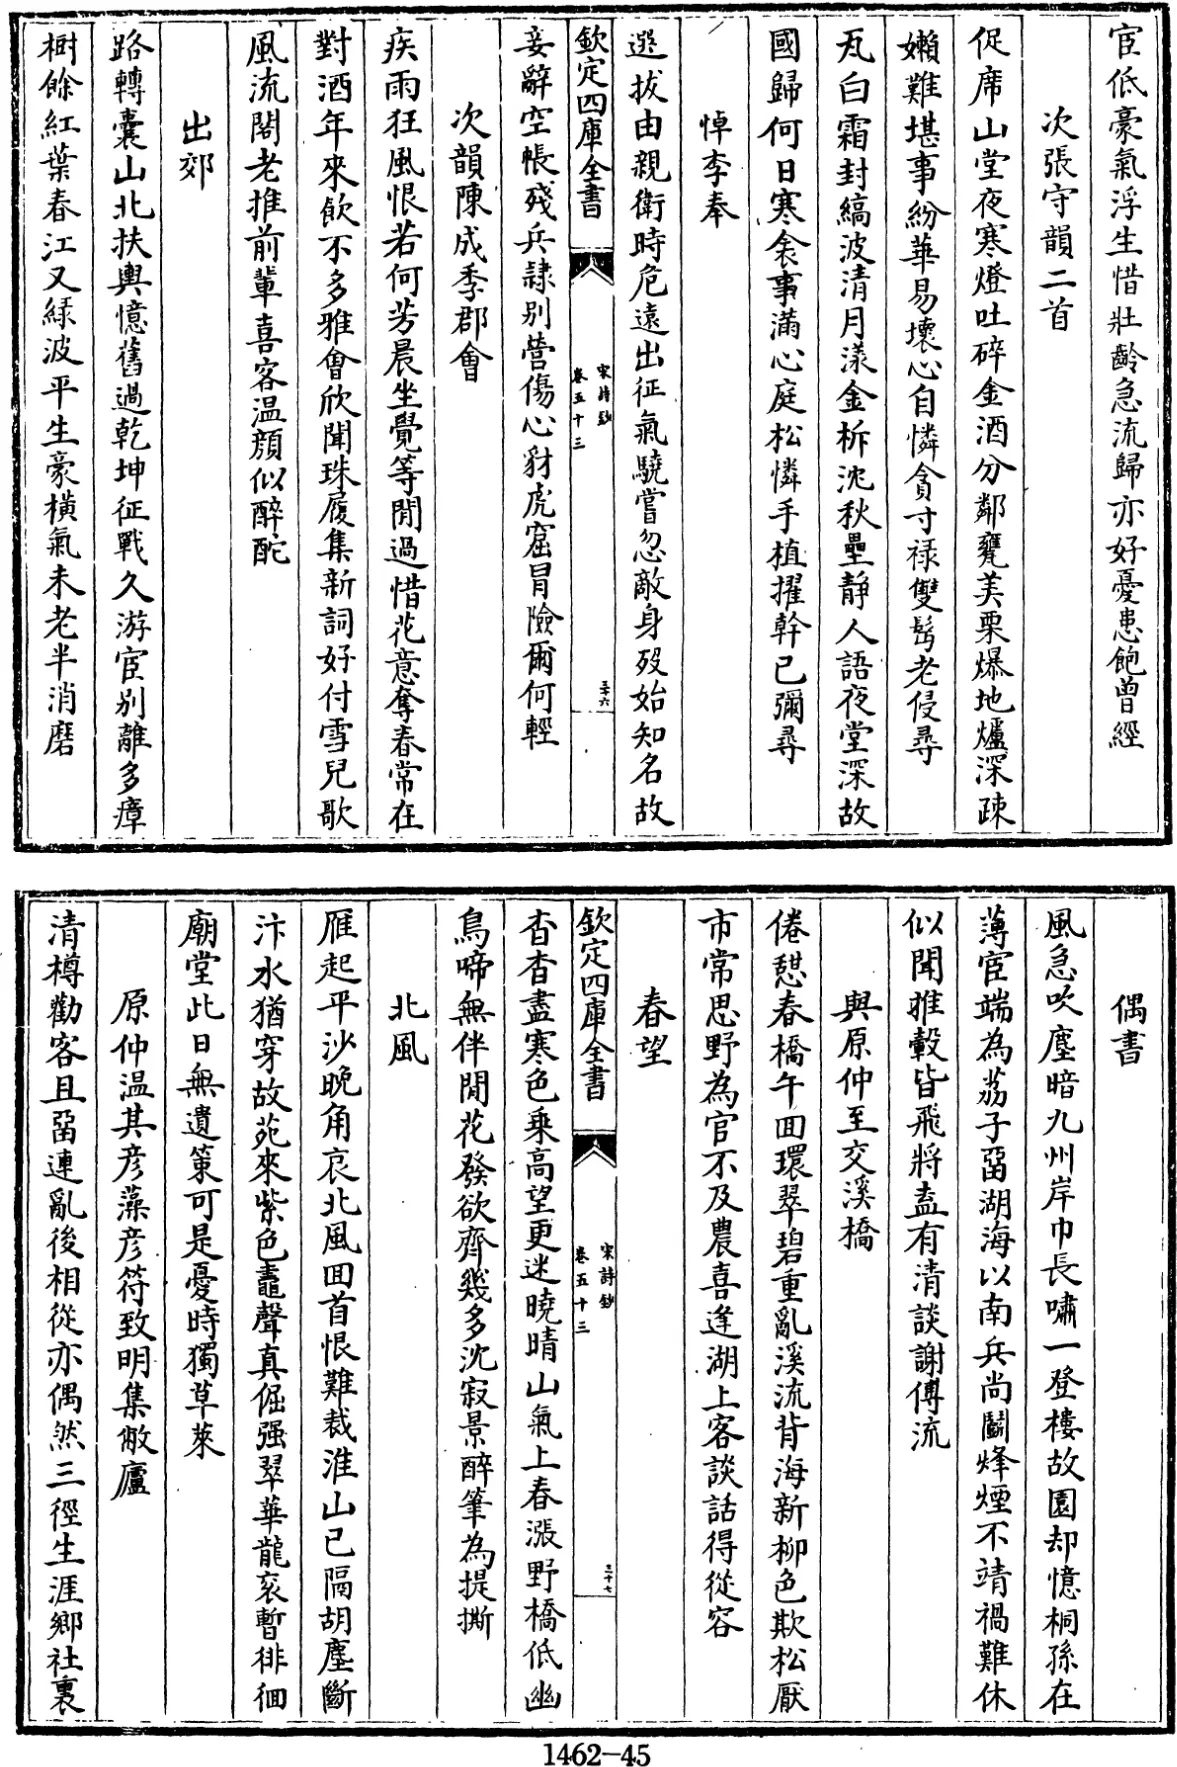 宦低豪氣浮生惜壯齡急流歸亦好憂患飽曾經
次張守韻二首
促席山堂夜寒燈吐碎金酒分鄰甕美栗爆地爐深疎
嬾難堪事紛華易壞心自憐貪寸禄雙鬂老侵尋
瓦白霜封縞波清月漾金柝沈秋壘静人語夜堂深故
國歸何日寒衾事滿心庭松憐手植擢幹已彌尋
悼李奉
選拔由親衛時危遠出征氣驍嘗忽敵身歿始知名故
欽定四庫全書
宋詩鈔
卷五十三
三十六
妾辭空帳殘兵隷别營傷心豺虎窟冒險爾何輕
次韻陳成季郡會
疾雨狂風恨若何芳晨坐覺等閒過惜花意奪春常在
對酒年來飲不多雅會欣聞珠履集新詞好付雪兒歌
風流閣老推前輩喜客温顔似醉酡
出郊
路轉囊山北扶輿憶舊過乾坤征戰久游宦别離多瘴
樹餘紅葉春江又緑波平生豪橫氣未老半消磨
偶書
風急吹塵暗九州岸巾長嘯一登樓故園却憶桐孫在
薄宦端為荔子畱湖海以南兵尚鬬烽煙不靖禍難休
似聞推轂皆飛將盍有清談謝傅流
與原仲至交溪橋
倦憩春橋午囬環翠碧重亂溪流背海新柳色欺松厭
市常思野為官不及農喜逢湖上客談話得從容
春望
欽定四庫全書
宋詩鈔
卷五十三
三十七
杳杳盡寒色乘高望更迷曉晴山氣上春漲野橋低幽
鳥啼無伴閒花發欲齊幾多沈寂景醉筆為提撕
北風
雁起平沙晚角哀北風囬首恨難裁淮山已隔胡塵斷
汴水猶穿故苑來紫色鼃聲真倔强翠華龍衮暫徘徊
廟堂此日無遺策可是憂時獨草萊
原仲温其彦藻彦符致明集敝廬
清樽勸客且畱連亂後相從亦偶然三徑生涯鄉社裏
1462-45